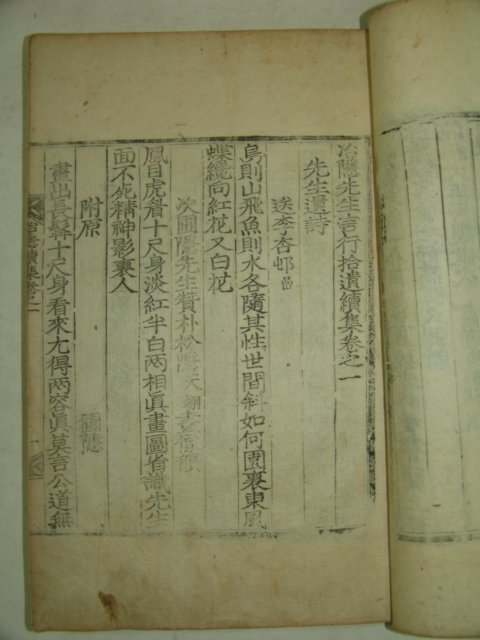 冶隱先生言行拾遺續集卷之一
先生遺詩
送李杏邨
鳥則山飛魚則水各隨其性世間斜如何園裏東風
蝶纔向紅花又白花
次圃隱先生贊朴松隱天翊畫像韻
鳳目虎眉十尺身淡紅半白兩相眞畫圖省識先生
面不死精神影裏人
附原
圃隱
畫出長髯十尺身看來尤得兩容眞莫言公道無
冶隱續集卷之一